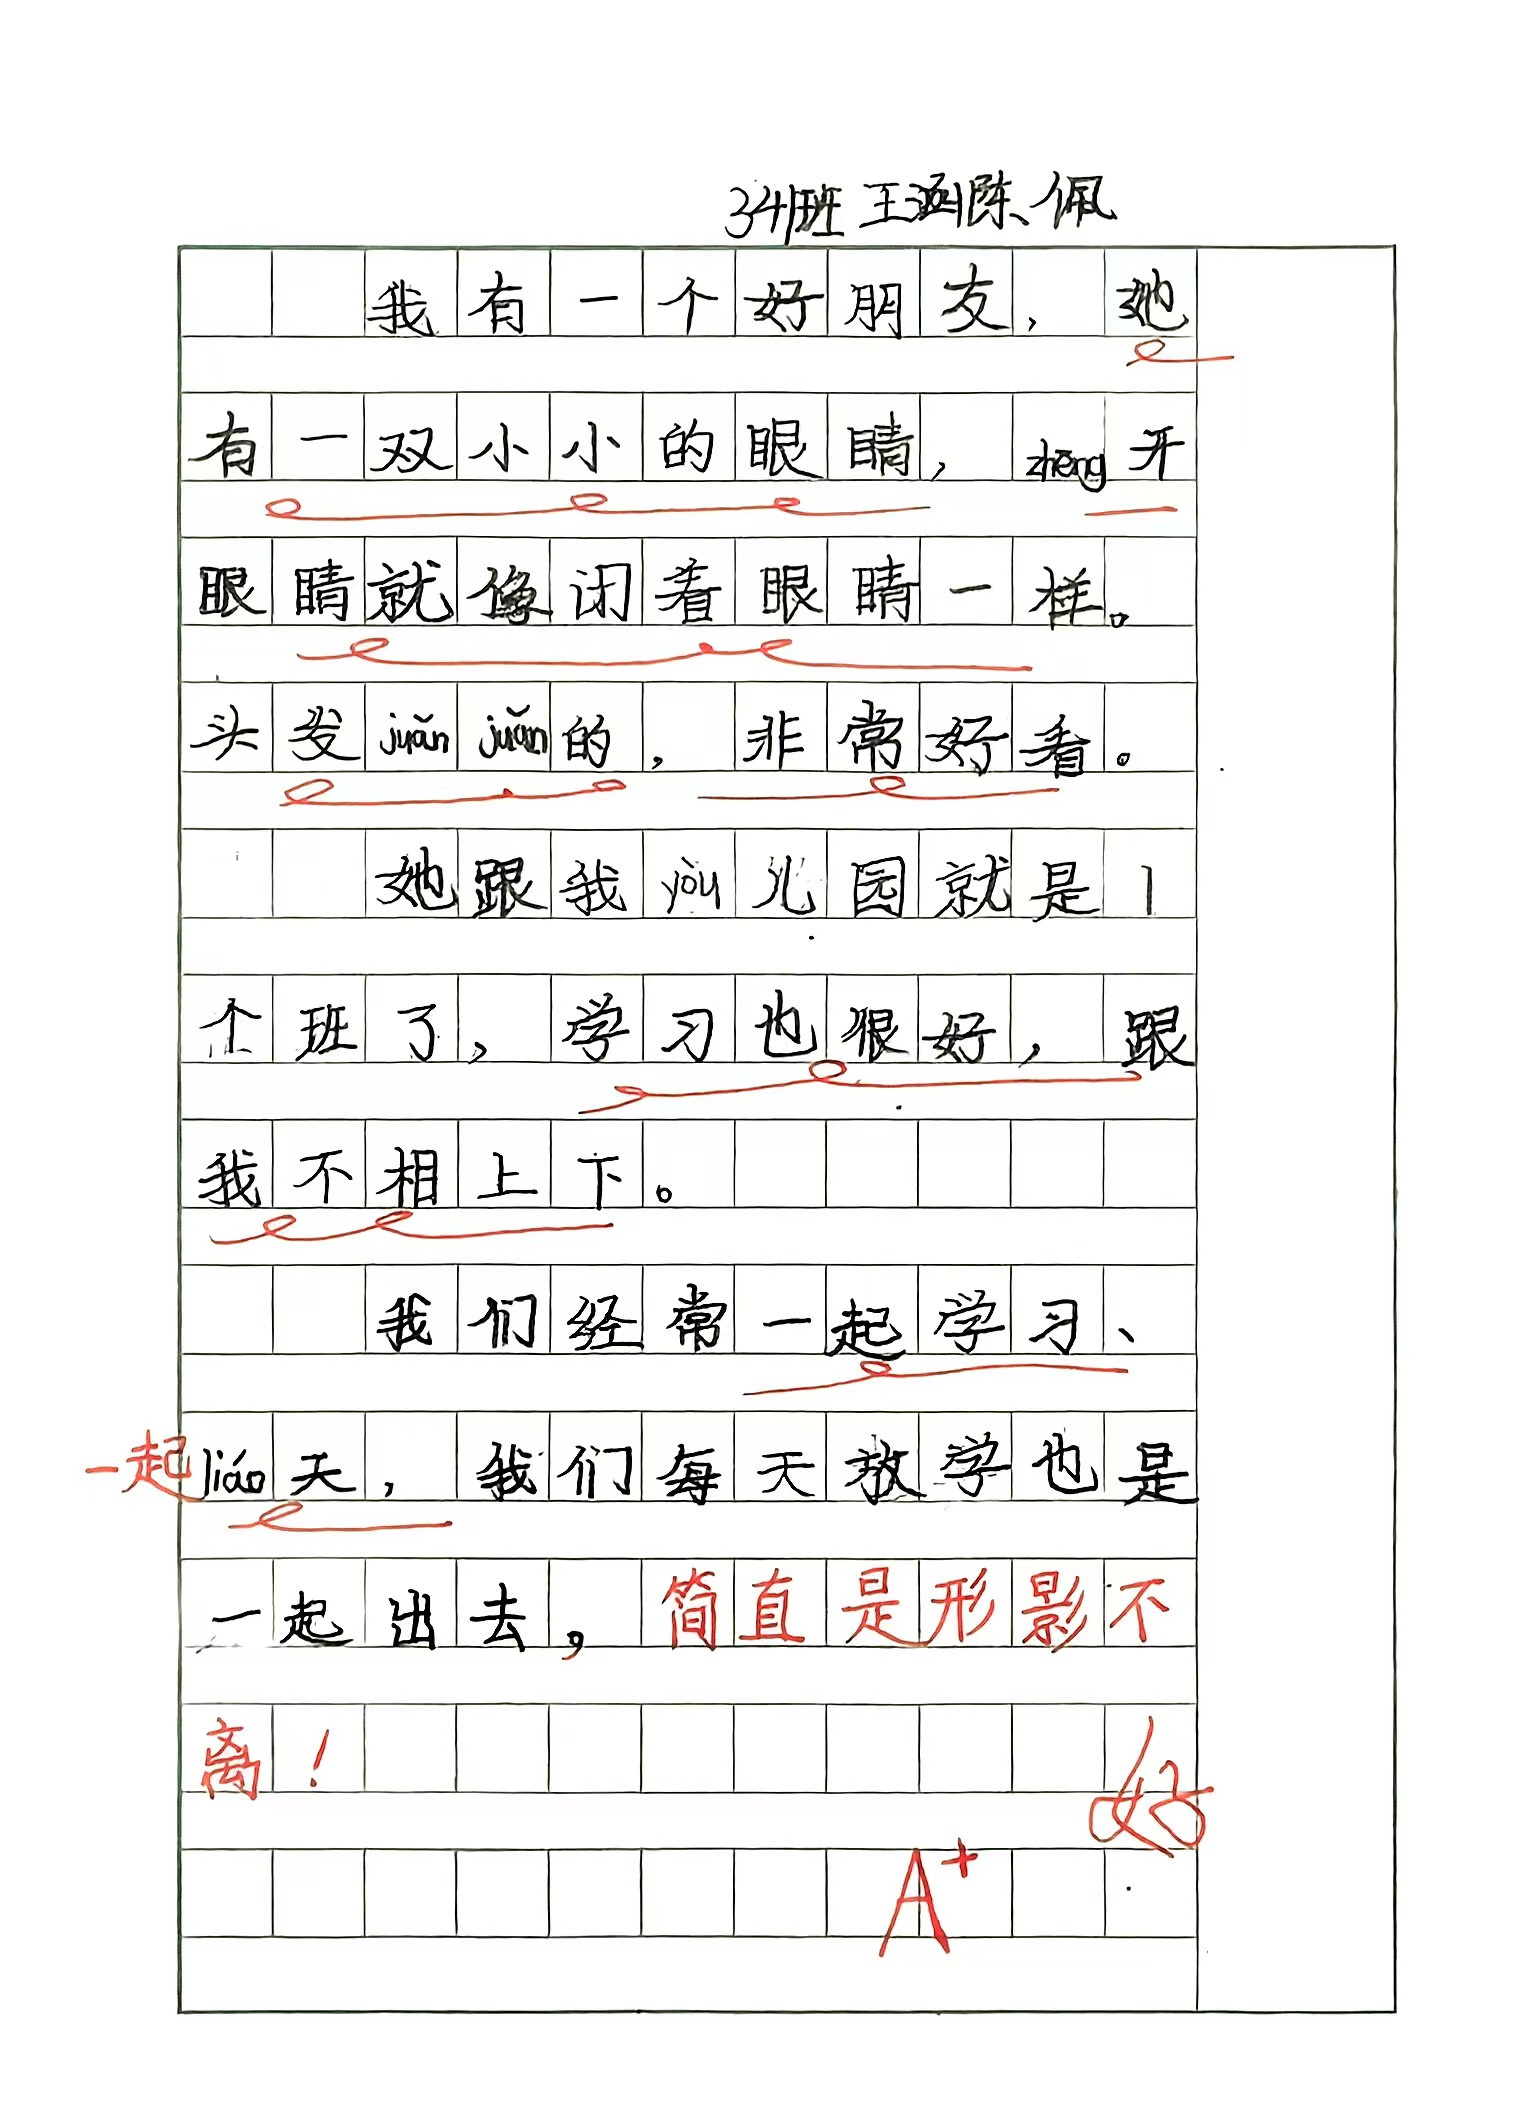 341班 王涵陈佩
我有一个好朋友，她
有一双小小的眼睛，zhēng开
眼睛就像闭着眼睛一样。
头发juǎn juǎn的，非常好看。
她跟我yòu儿园就是1
个班了，学习也很好，跟
我不相上下。
我们经常一起学习、
一起liáo天，我们每天放学也是
一起出去，简直是形影不
离！
好
A+